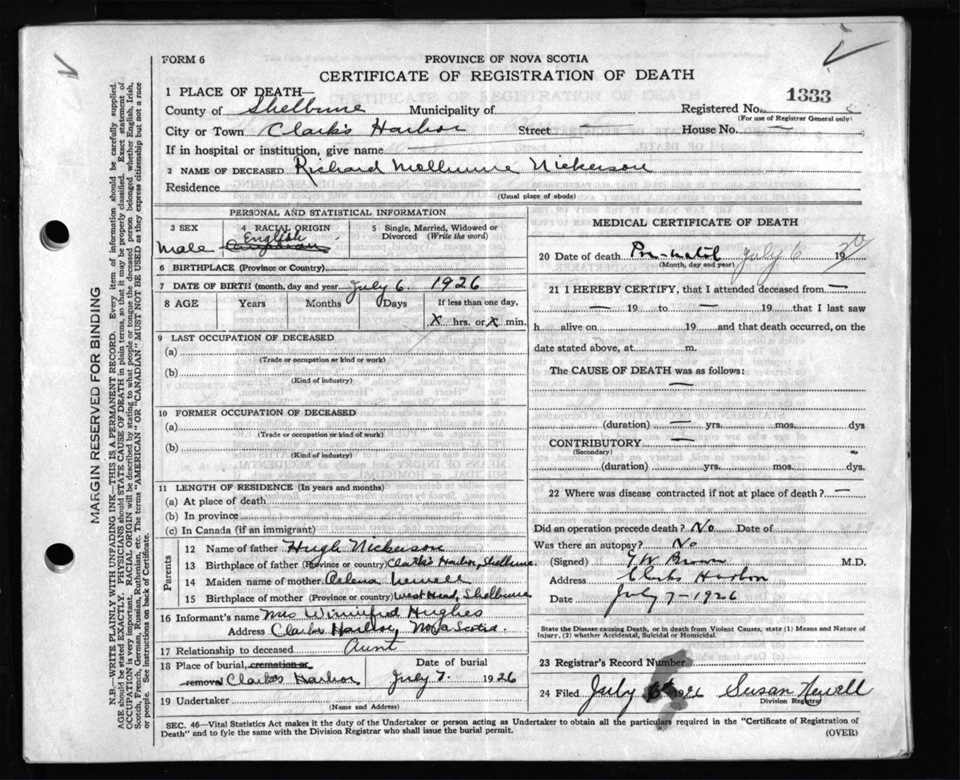 FORM 6
PROVINCE OF NOVA SCOTIA
CERTIFICATE OF REGISTRATION OF DEATH
1 PLACE OF DEATH—
1333
County of Shelburne Municipality of Registered No.
(For use of Registrar General only)
City or Town Clark's Harbor Street — House No. —
If in hospital or institution, give name —
2 NAME OF DECEASED Richard Nickerson
Residence
(Usual place of abode)
PERSONAL AND STATISTICAL INFORMATION
3 SEX Male
4 RACIAL ORIGIN English Canadian
5 Single, Married, Widowed or Divorced (Write the word)
6 BIRTHPLACE (Province or Country)
7 DATE OF BIRTH (month, day and year) July 6. 1926
8 AGE Years Months Days If less than one day,
X hrs. or X min.
9 LAST OCCUPATION OF DECEASED
(a)
(Trade or occupation or kind or work)
(b)
(Kind of industry)
10 FORMER OCCUPATION OF DECEASED
(a)
(Trade or occupation or kind of work)
(b)
(Kind of industry)
11 LENGTH OF RESIDENCE (In years and months)
(a) At place of death
(b) In province
(c) In Canada (if an immigrant)
Parents
12 Name of father Hugh Nickerson
13 Birthplace of father (Province or country) Clark's Harbor, Shelburne
14 Maiden name of mother Newell
15 Birthplace of mother (Province or country) West Head, Shelburne
16 Informant's name Mrs Winnifred Hughes
Address Clarks Harbor, Nova Scotia.
17 Relationship to deceased Aunt
18 Place of burial, cremation or removal Clarks Harbor
Date of burial July 7. 1926
19 Undertaker
(Name and Address)
MEDICAL CERTIFICATE OF DEATH
20 Date of death Pre-natal July 6 19
(Month, day and year)
21 I HEREBY CERTIFY, that I attended deceased from —
— 19 to — 19 that I last saw
h alive on 19 and that death occurred, on the
date stated above, at m.
The CAUSE OF DEATH was as follows:
—
(duration) — yrs. mos. dys
CONTRIBUTORY —
(Secondary)
(duration) yrs. mos. dys.
22 Where was disease contracted if not at place of death? —
Did an operation precede death? No Date of
Was there an autopsy? No
(Signed) Brown M.D.
Address Clarks Harbor
Date July 7-1926
State the Disease causing Death, or in death from Violent Causes, state (1) Means and Nature of
Injury, (2) whether Accidental, Suicidal or Homicidal.
23 Registrar's Record Number
24 Filed July 1926 Susan Newell
Division Registrar
SEC. 46—Vital Statistics Act makes it the duty of the Undertaker or person acting as Undertaker to obtain all the particulars required in the "Certificate of Registration of
Death" and to fyle the same with the Division Registrar who shall issue the burial permit.
(OVER)
MARGIN RESERVED FOR BINDING
N.B.—WRITE PLAINLY WITH UNFADING INK—THIS IS A PERMANENT RECORD. Every item of information should be carefully supplied.
AGE should be stated EXACTLY. PHYSICIANS should STATE CAUSE OF DEATH in plain terms, so that it may be properly classified. Exact statement of
OCCUPATION is very important. RACIAL ORIGIN will be described by stating to what people or tongue the deceased person belonged whether English, Irish,
Scotch, French, German, Russian, Ruthenian, etc. The terms "AMERICAN" OR "CANADIAN" MUST NOT BE USED as they express citizenship but not a race
or people. See instructions on back of Certificate.